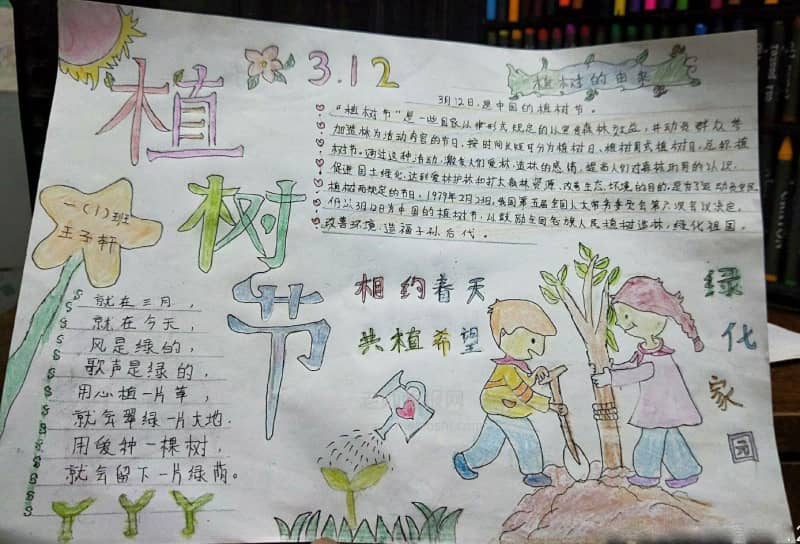 植树节
3.12
植树的由来
一(1)班
王子轩
3月12日,是中国的植树节。
"植树节"是一些国家以法律形式规定的以宣传森林效益,并动员群众参
加造林为活动内容的节日,按时间长短可分为植树日、植树周或植树月,总称植
树节。通过这种活动,激发人们爱林、造林的感情,提高人们对森林功用的认识,
促进国土绿化,达到爱林护林和扩大森林资源、改善生态环境的目的,是为了动员全民
植树而规定的节日。1979年2月23日,我国第五届全国人大常务委员会第六次会议决定,
仍以3月12日为中国的植树节,以鼓励全国各族人民植树造林,绿化祖国,
改善环境,造福子孙后代。
相约春天
共植希望
绿化家园
就在三月,
就在今天,
风是绿的,
歌声是绿的,
用心植一片草,
就会翠绿一片大地.
用爱种一棵树,
就会留下一片绿荫。